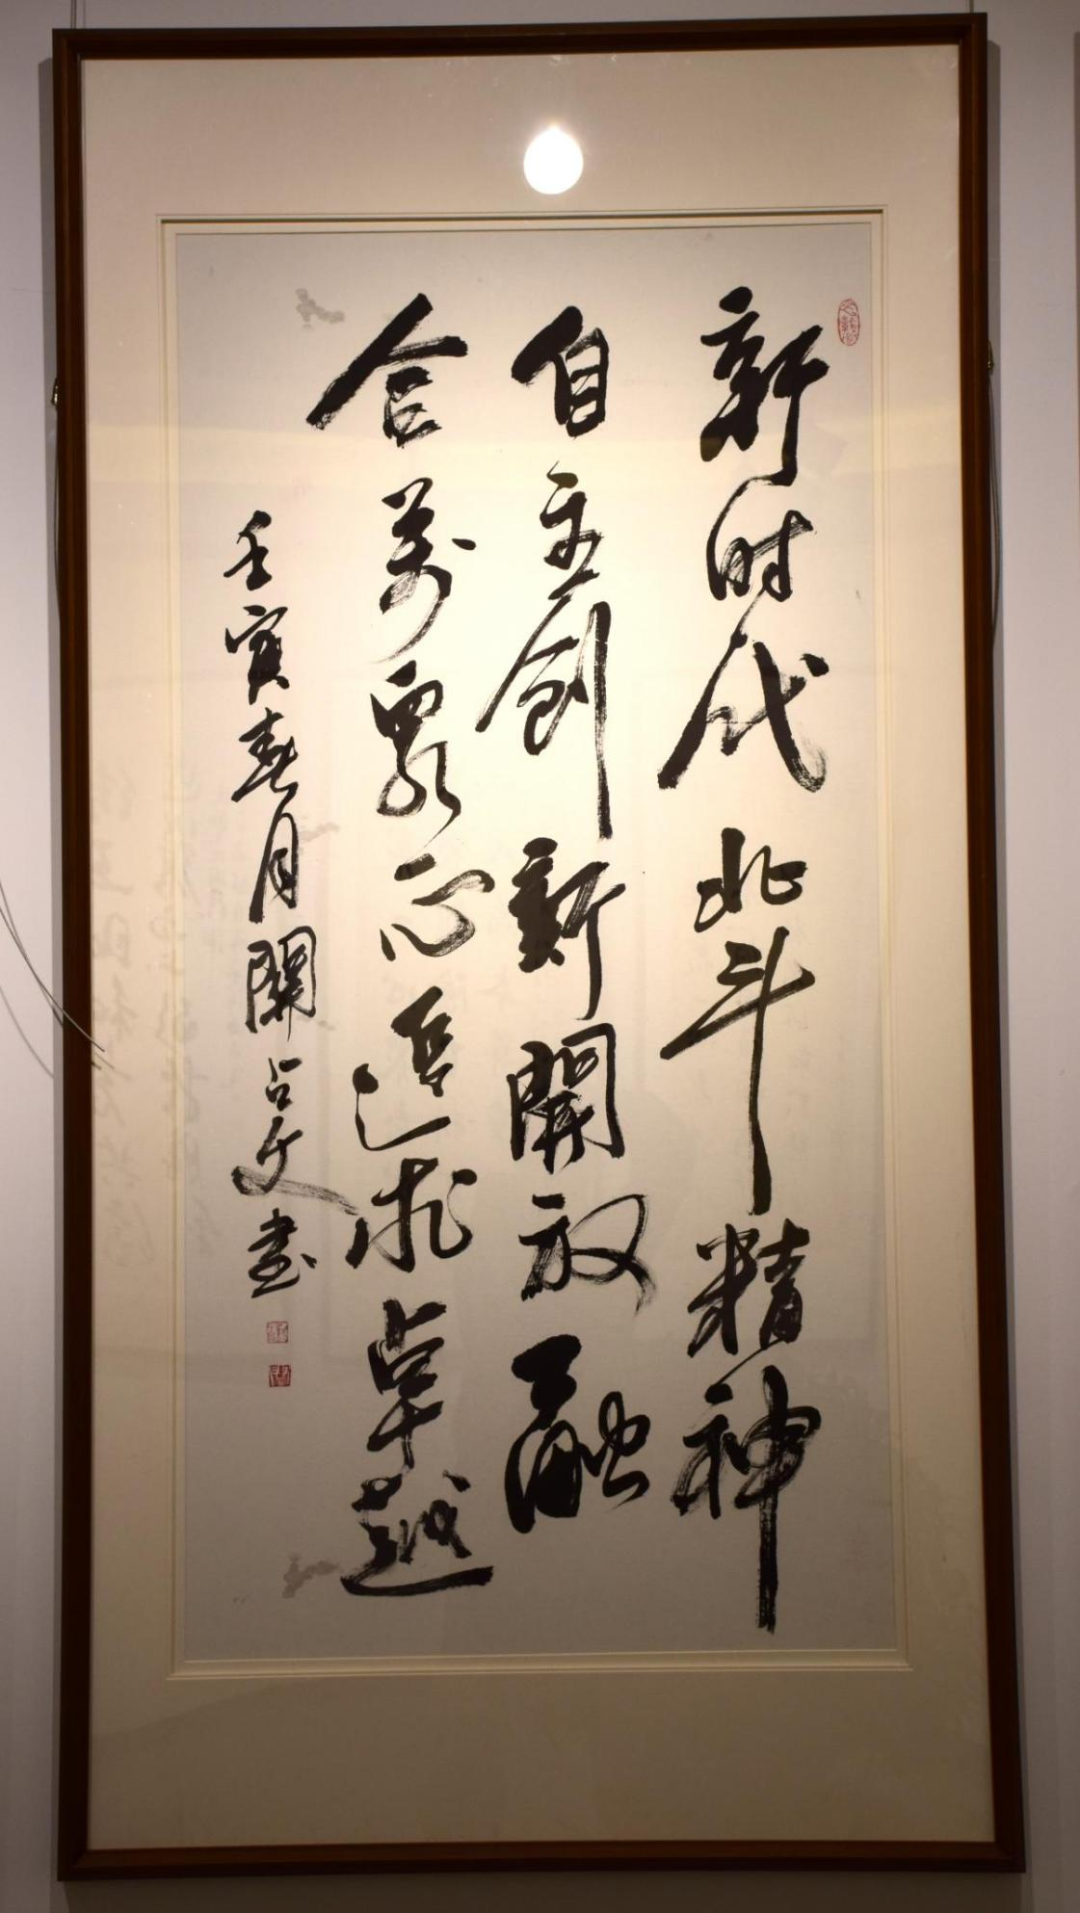 新时代北斗精神
自主創新開放融
合萬眾一心追求卓越
壬寅春月關占文書